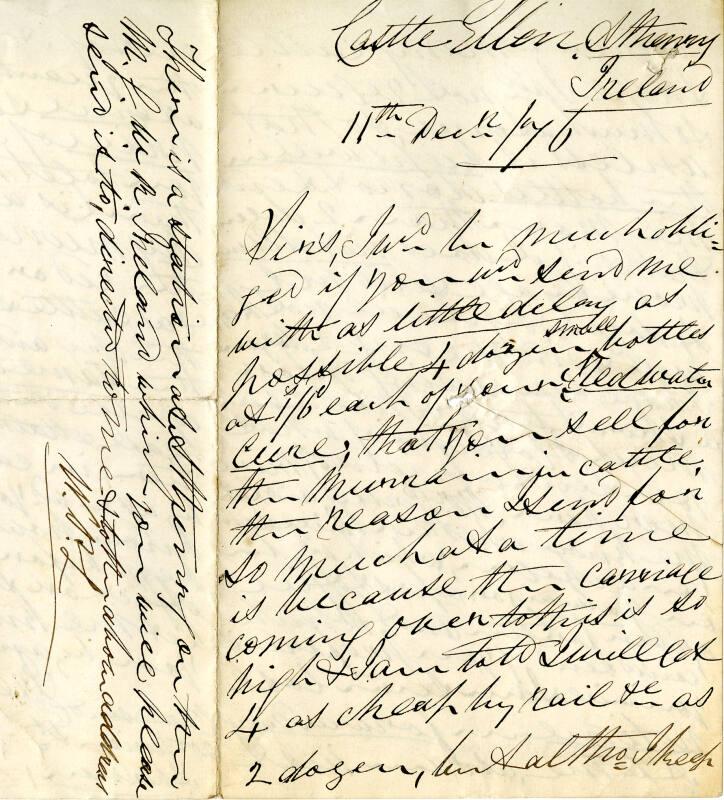 Castle Ellen, Athenry
Ireland
11th Decr /76
Sirs, I wd be much obli-
ged if you wd send me
with as little delay as
possible 4 dozen small bottles
at 1/6d each of your Redwater
cure, that you sell for
the Murrain in cattle,
the reason I send for
so much at a time
is because the carriage
coming over to this is so
high & I am told I will get
4 as cheap by rail &c as
2 dozen, but altho I keep
There is a station at Athenry on the
M. G. W. R. Ireland which you will please
send it to, directed to me to the above address